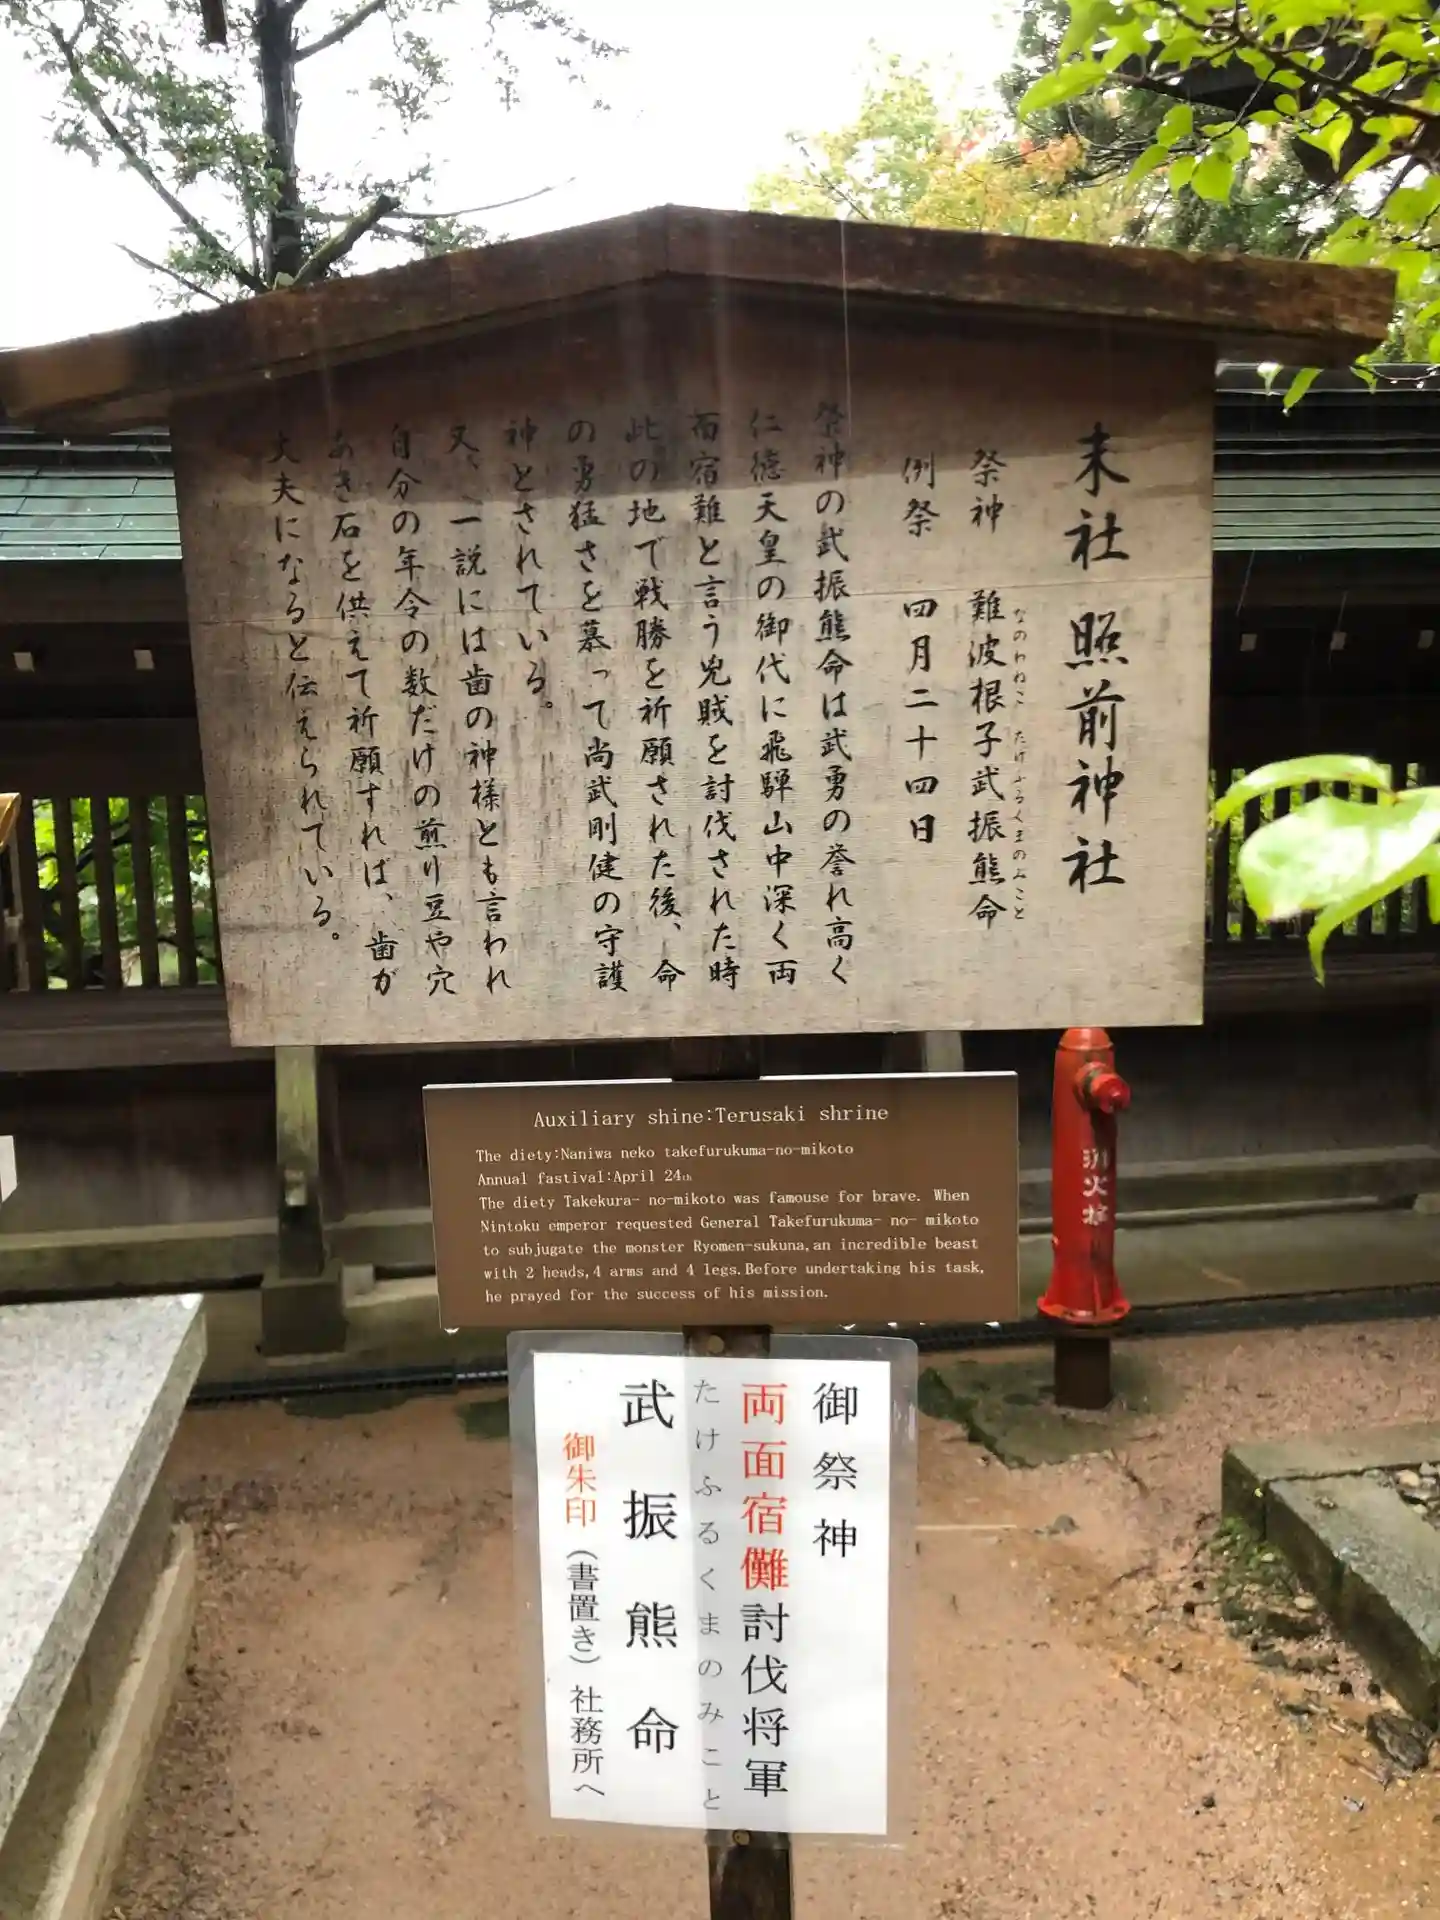 末社 照前神社
祭神 難波根子武振熊命
なのわねこ たけふるくまのみこと
例祭 四月二十四日
祭神の武振熊命は武勇の誉れ高く
仁徳天皇の御代に飛騨山中深く両
面宿難と言う兇賊を討伐された時
此の地で戦勝を祈願された後、命
の勇猛さを慕って尚武剛健の守護
神とされている。
又、一説には歯の神様とも言われ
自分の年令の数だけの煎り豆や穴
あき石を供えて祈願すれば、歯が
丈夫になると伝えられている。
Auxiliary shine:Terusaki shrine
The diety:Naniwa neko takefurukuma-no-mikoto
Annual fastival:April 24th
The diety Takekura- no-mikoto was famouse for brave. When
Nintoku emperor requested General Takefurukuma- no- mikoto
to subjugate the monster Ryomen-sukuna,an incredible beast
with 2 heads,4 arms and 4 legs.Before undertaking his task,
he prayed for the success of his mission.
消火栓
御祭神
両面宿儺討伐将軍
たけふるくまのみこと
武振熊命
御朱印(書置き)社務所へ